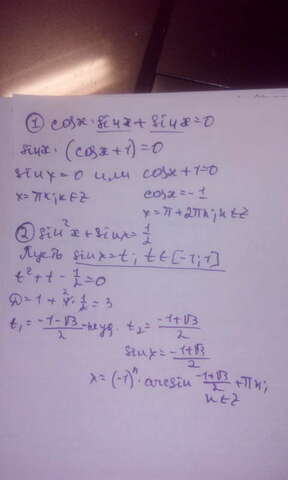 ① cosx · sinx + sinx = 0
sinx · (cosx + 1) = 0
sinx = 0 или cosx + 1 = 0
x = πk; k ∈ Z cosx = -1
x = π + 2πk; k ∈ Z
② sin²x + sinx = 1/2
Пусть sinx = t; t ∈ [-1; 1]
t² + t - 1/2 = 0
D = 1 + 4 · 1/2 = 3
t₁ = (-1-√3)/2 - не уд. t₂ = (-1+√3)/2
sinx = (-1+√3)/2
x = (-1)ⁿ · arcsin (-1+√3)/2 + πn;
n ∈ Z